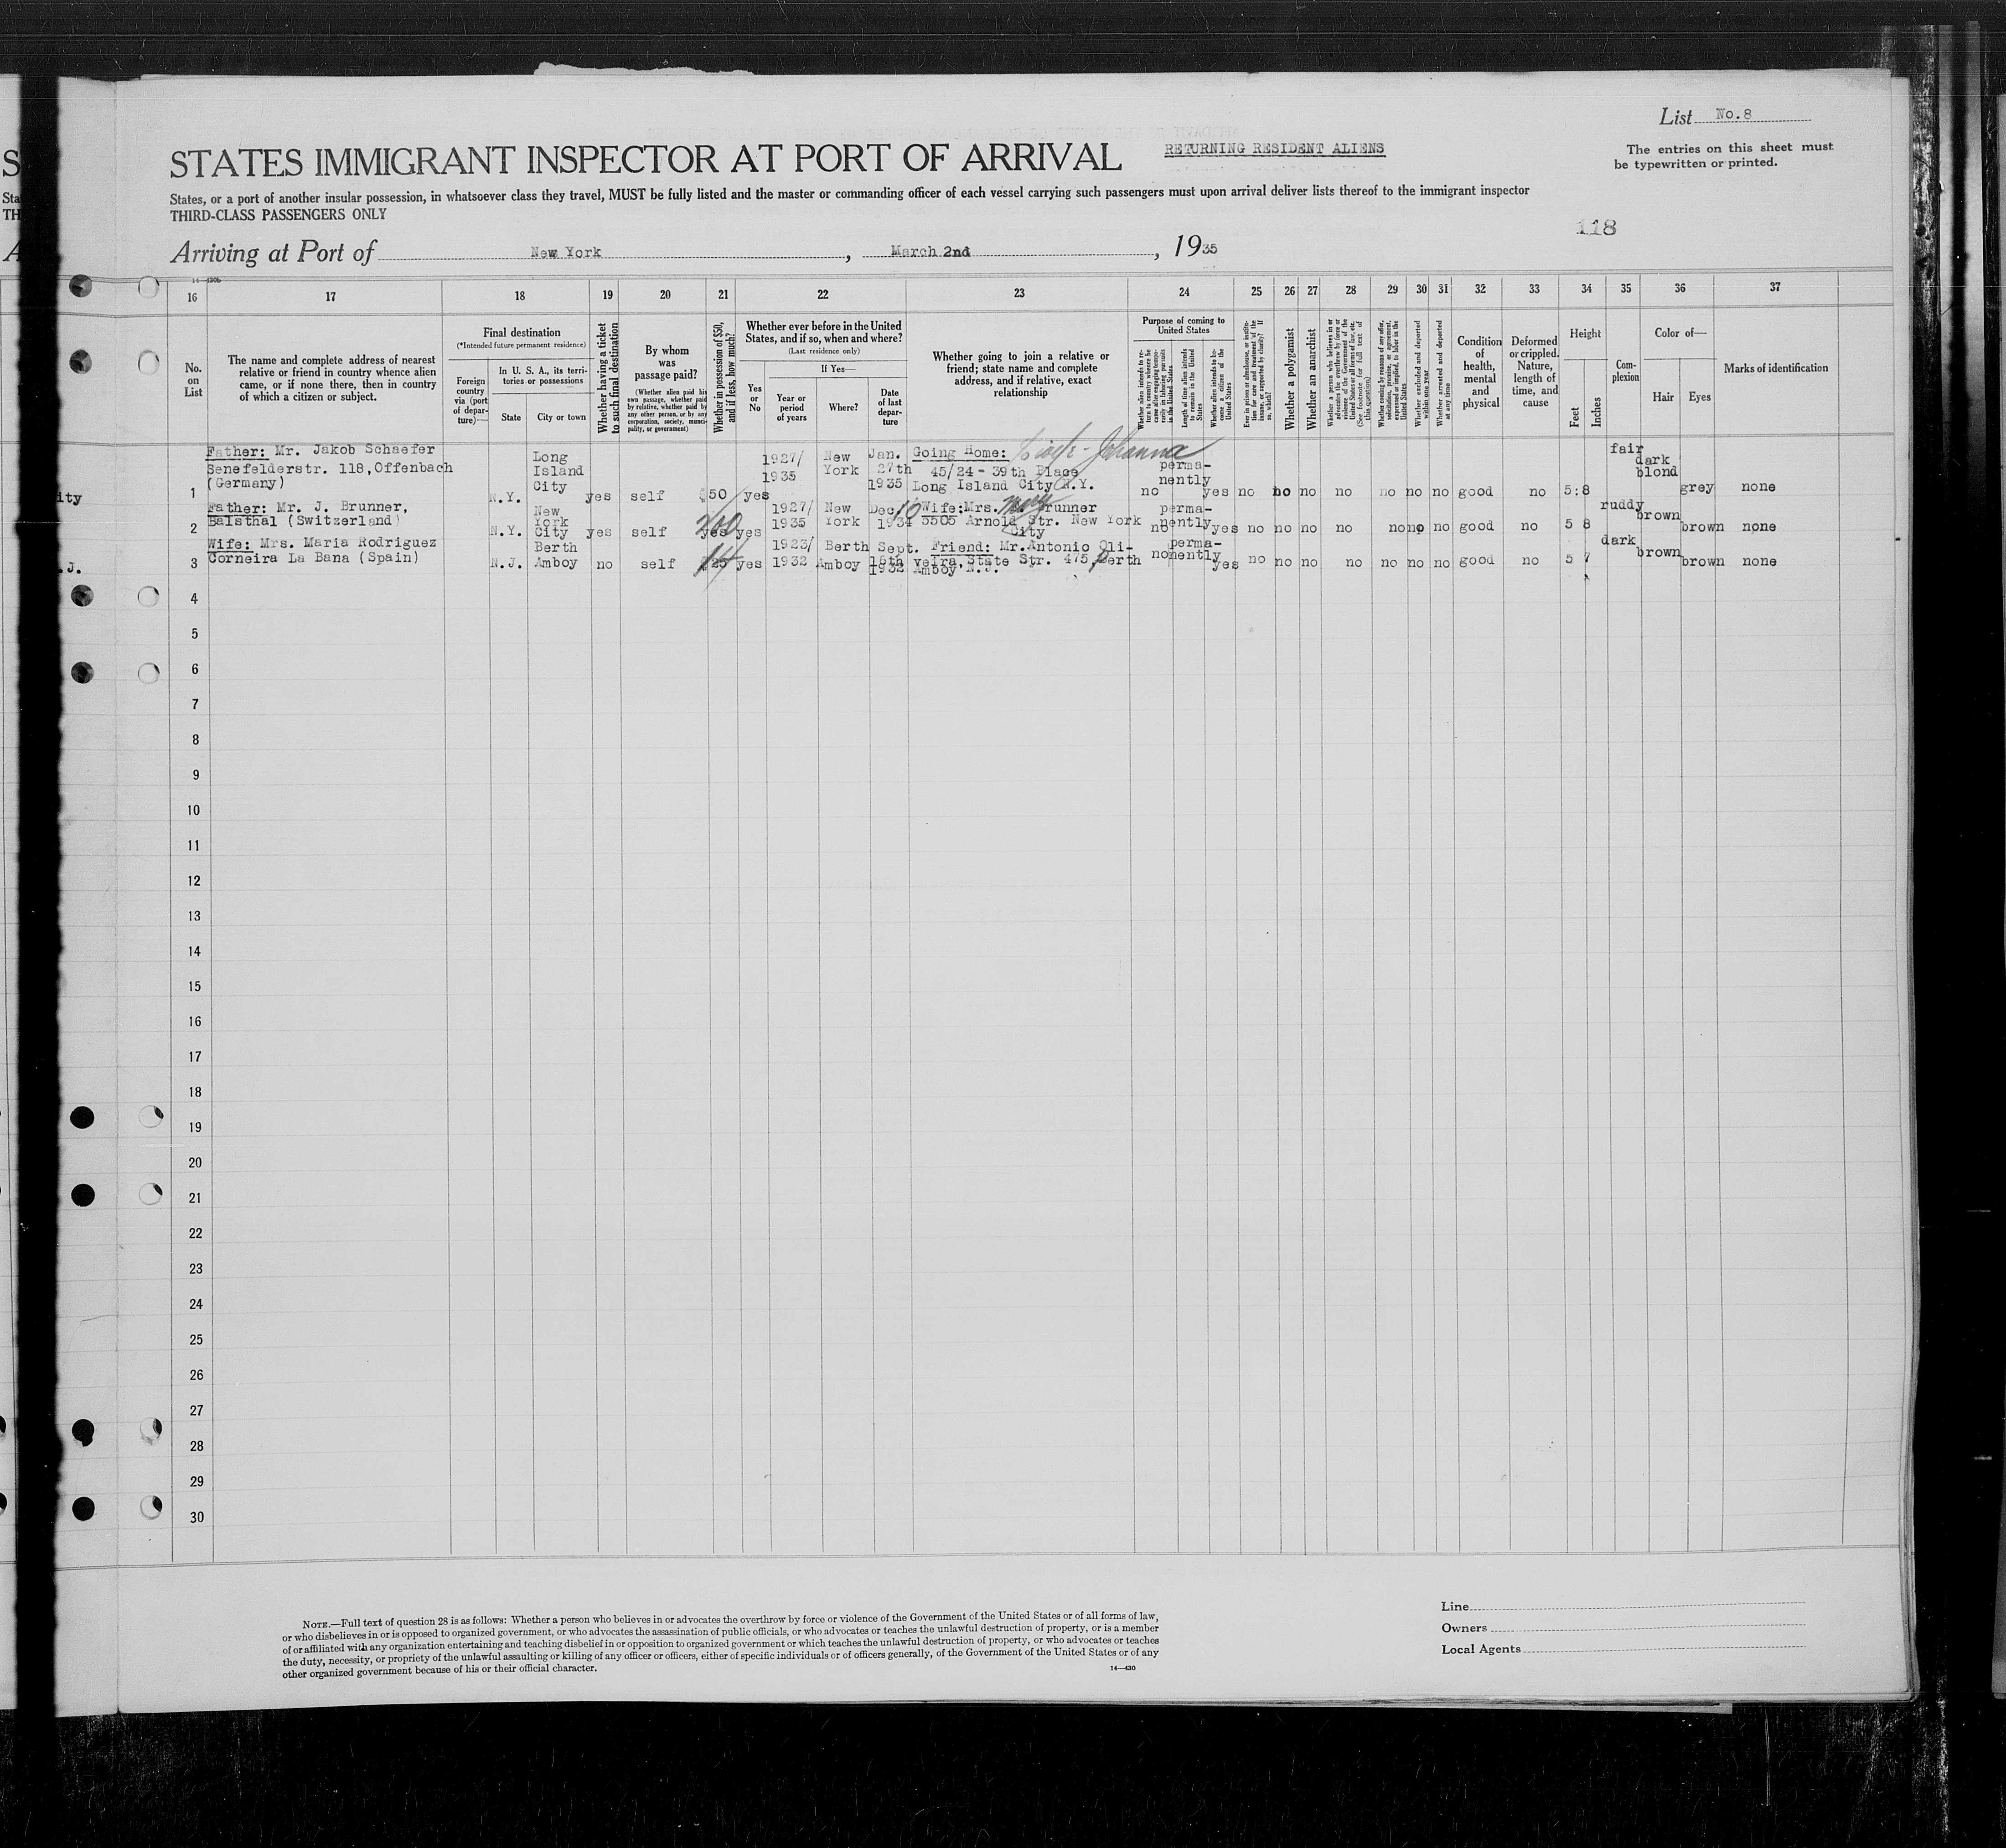 List No.8
STATES IMMIGRANT INSPECTOR AT PORT OF ARRIVAL
RETURNING RESIDENT ALIENS
The entries on this sheet must
be typewritten or printed.
States, or a port of another insular possession, in whatsoever class they travel, MUST be fully listed and the master or commanding officer of each vessel carrying such passengers must upon arrival deliver lists thereof to the immigrant inspector
THIRD-CLASS PASSENGERS ONLY
118
Arriving at Port of New York, March 2nd, 1935
16 17 18 19 20 21 22 23 24 25 26 27 28 29 30 31 32 33 34 35 36 37
No. on List
The name and complete address of nearest
relative or friend in country whence alien
came, or if none there, then in country
of which a citizen or subject.
Final destination
(*Intended future permanent residence)
Foreign country via (port of departure)—
In U. S. A., its territories or possessions
State
City or town
Whether having a ticket to such final destination
By whom was passage paid?
(Whether alien paid his own passage, whether paid by relative, whether paid by any other person, or by any corporation, society, municipality, or government)
Whether in possession of $50, and if less, how much?
Whether ever before in the United
States, and if so, when and where?
(Last residence only)
Yes or No
If Yes—
Year or period of years
Where?
Date of last departure
Whether going to join a relative or
friend; state name and complete
address, and if relative, exact
relationship
Purpose of coming to United States
Length of time alien intends to remain in the United States
Whether alien intends to become a citizen of the United States
Whether a polygamist
Whether an anarchist
Whether excluded and deported within one year
Whether arrested and deported at any time
Condition of health, mental and physical
Deformed or crippled. Nature, length of time, and cause
Height
Feet
Inches
Complexion
Color of—
Hair
Eyes
Marks of identification
ity
1 Father: Mr. Jakob Schaefer
Senefelderstr. 118, Offenbach
(Germany)
N.Y. Long Island City yes self 50 yes 1927/1935 New York Jan. 27th 1935 Going Home: Johanna
45/24 - 39th Place
Long Island City N.Y.
no permanently yes no no no no no no no good no 5:8 fair dark blond grey none
2 Father: Mr. J. Brunner,
Balsthal (Switzerland)
N.Y. New York City yes self 200 yes yes 1927/1935 New York Dec 10 1934 Wife: Mrs. Mary Brunner
5505 Arnold Str. New York
City
no permanently yes no no no no no no no good no 5 8 ruddy brown brown none
.J.
3 Wife: Mrs. Maria Rodriguez
Corneira La Bana (Spain)
N.J. Berth Amboy no self yes 1923/1932 Berth Amboy Sept. 1932 Friend: Mr. Antonio Oli-
veira, State Str. 475, Perth
Amboy N.J.
no permanently yes no no no no no no no good no 5 7 dark brown brown none
4
5
6
7
8
9
10
11
12
13
14
15
16
17
18
19
20
21
22
23
24
25
26
27
28
29
30
NOTE.—Full text of question 28 is as follows: Whether a person who believes in or advocates the overthrow by force or violence of the Government of the United States or of all forms of law,
or who disbelieves in or is opposed to organized government, or who advocates the assassination of public officials, or who advocates or teaches the unlawful destruction of property, or is a member
of or affiliated with any organization entertaining and teaching disbelief in or opposition to organized government or which teaches the unlawful destruction of property, or who advocates or teaches
the duty, necessity, or propriety of the unlawful assaulting or killing of any officer or officers, either of specific individuals or of officers generally, of the Government of the United States or of any
other organized government because of his or their official character.
14—430
Line
Owners
Local Agents